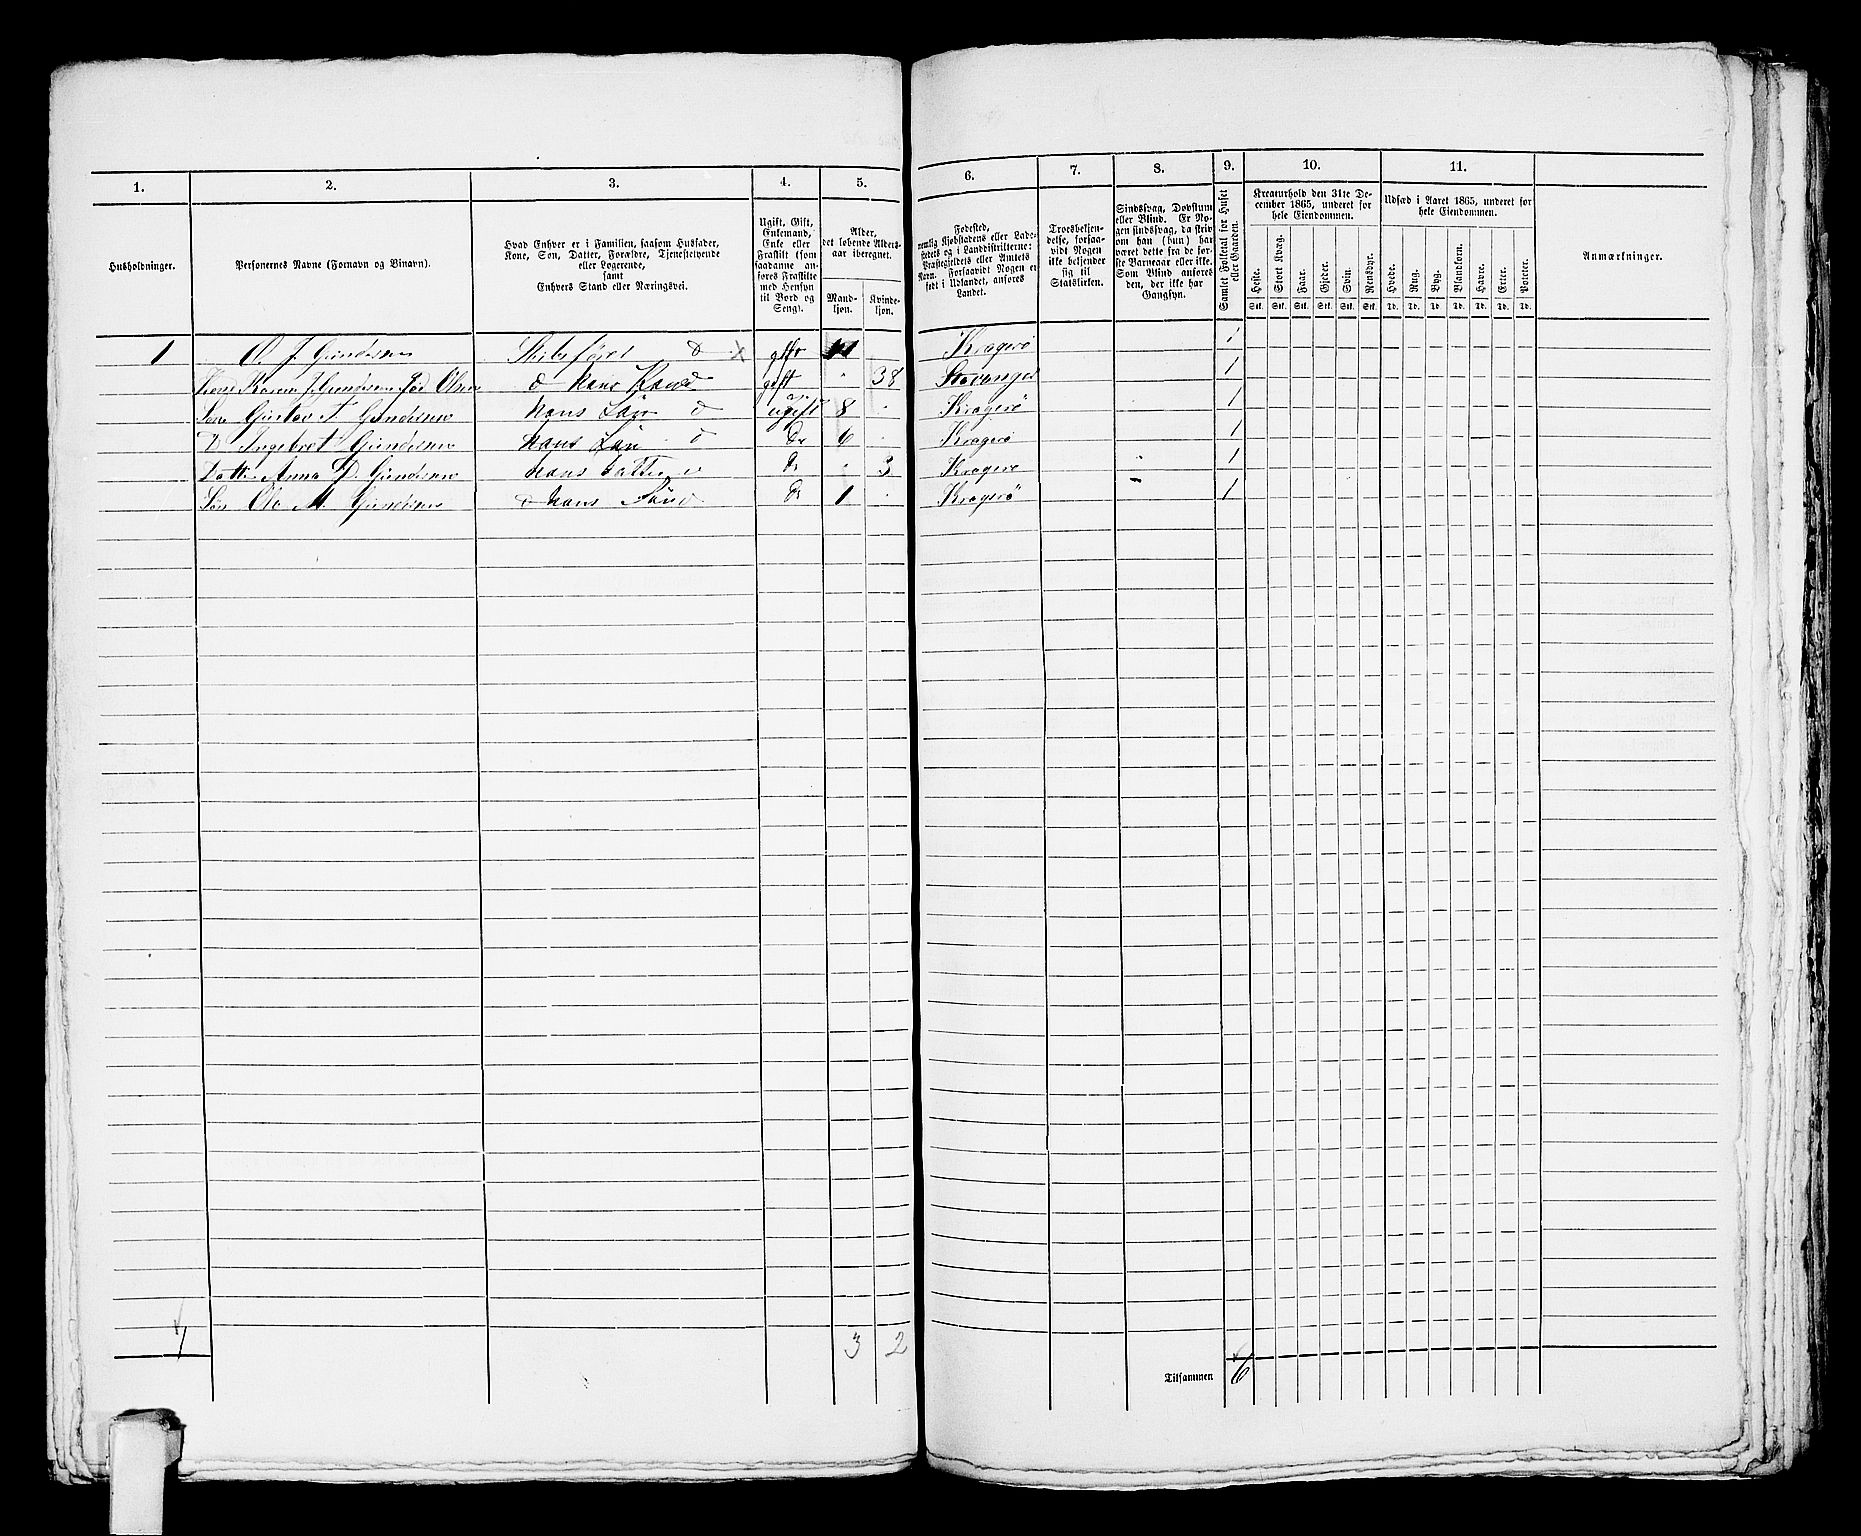 1. 2. 3. 4. 5. 6. 7. 8. 9. 10. 11.
Husholdninger.
Personernes Navne (Fornavn og Binavn).
Hvad Enhver er i Familien, saasom Husfader,
Kone, Søn, Datter, Forældre, Tjenestetyende
eller Logerende,
samt
Enhvers Stand eller Næringsvei.
Ugift, Gift,
Enkemand,
Enke eller
Fraskilt (som
saadanne an-
føres Fraskilte
med Hensyn
til Bord og
Seng).
Alder,
det løbende Alders-
aar iberegnet.
Mand-
kjøn.
Kvinde-
kjøn.
Fødested,
nemlig Kjøbstadens eller Lade-
stedets og i Landdistrikterne:
Præstegjeldets eller Amtets
Navn. Forsaavidt Nogen er
født i Udlandet, anføres
Landet.
Troesbekjen-
delse, forsaa-
vidt Nogen
ikke bekjender
sig til
Statskirken.
Sindssvag, Døvstum
eller Blind. Er No-
gen sindssvag, da skriv
om han (hun) har
været dette fra de før-
ste Barneaar eller ikke.
Som Blind anføres
den, der ikke har
Gangsyn.
Samlet Folketal for Huset
eller Gaarden.
Kreaturhold den 31te De-
cember 1865, underet for
hele Eiendommen.
Heste. Stort Kvæg. Faar. Gjeder. Svin. Rensdyr.
Stk. Stk. Stk. Stk. Stk. Stk.
Udsæd i Aaret 1865, underet for
hele Eiendommen.
Hvede. Rug. Byg. Blandkorn. Havre. Erter. Poteter.
Td. Td. Td. Td. Td. Td. Td.
Anmærkninger.
1 O. J. Gundersen Skibsfører × gift Kragerø 1
Kone Karen J. Gundersen fød Olsen hans Kone gift " 38 Stavanger 1
Søn Gustav F. Gundersen hans Søn ugift 8 Kragerø 1
D Ingebret Gundersen hans Søn Do 6 Kragerø 1
Datter Anna D. Gundersen hans Datter Do " 3 Kragerø 1
Søn Ole M. Gundersen hans Søn Do 1 Kragerø 1
1 3 2
Tilsammen 6